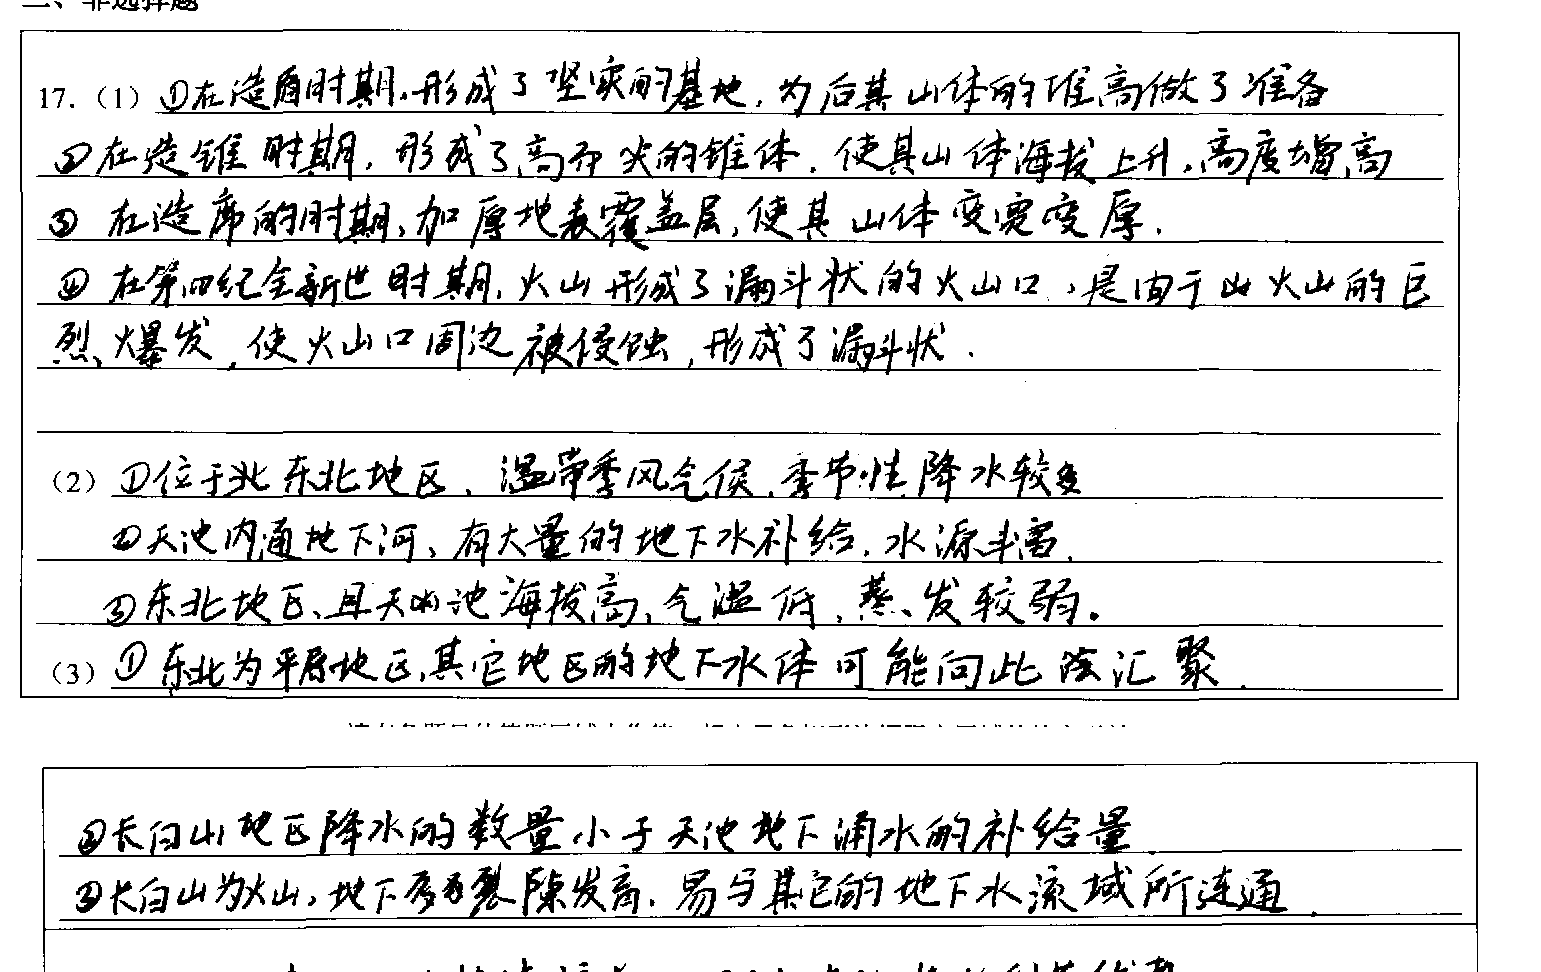 二、非选择题
17.（1）①在造盾时期,形成了坚实的基地,为后其山体的堆高做了准备
②在造锥时期,形成了高而尖的锥体,使其山体海拔上升,高度增高
③在造席的时期,加厚地表覆盖层,使其山体变宽变厚.
④在第四纪全新世时期,火山形成了漏斗状的火山口,是由于火山的巨
烈爆发,使火山口周边被侵蚀,形成了漏斗状.
（2）①位于东北地区、温带季风气候,季节性降水较多
②天池内通地下河、有大量的地下水补给,水源丰富.
③东北地区、且天池海拔高,气温低,蒸发较弱。
（3）①东北为平原地区,其它地区的地下水体可能向此汇聚.
②长白山地区降水的数量小于天池地下涌水的补给量.
③长白山为火山,地下裂隙发育,易与其它的地下水流域所连通.